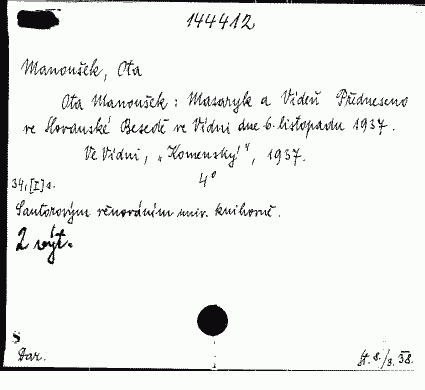 144412
Manoušek, Ota
Ota Manoušek: Masaryk a Vídeň Předneseno
ve Slovanské Besedě ve Vídni dne 6. listopadu 1937.
Ve Vídni, „Komenský", 1937.
4°
34, [I] s.
S autorovým věnováním univ. knihovně.
2 výt.
S
Dar. st. 8./3. 38.